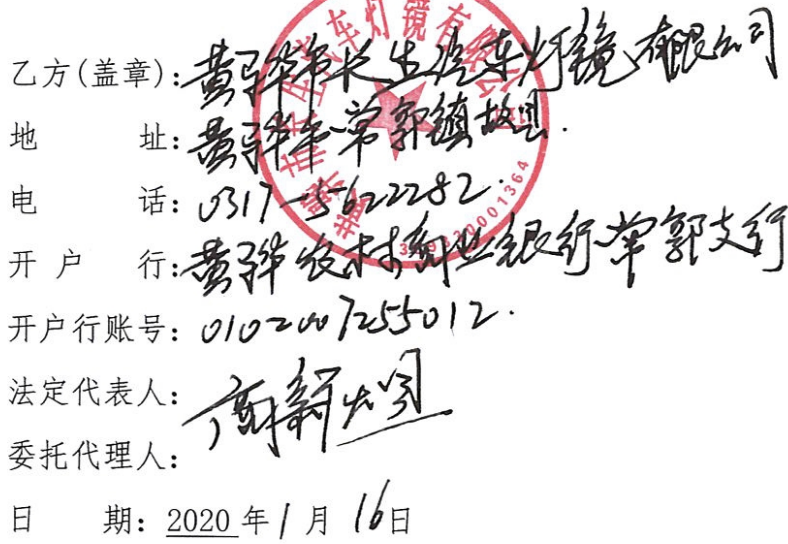 乙方(盖章):黄骅市长生汽车灯镜有限公司
地 址:黄骅市常郭镇故县.
电 话:0317-5622282.
开 户 行:黄骅农村商业银行常郭支行
开户行账号:0102007255012.
法定代表人:高新
委托代理人:
日 期:2020年1月16日
黄骅市长生汽车灯镜有限公司